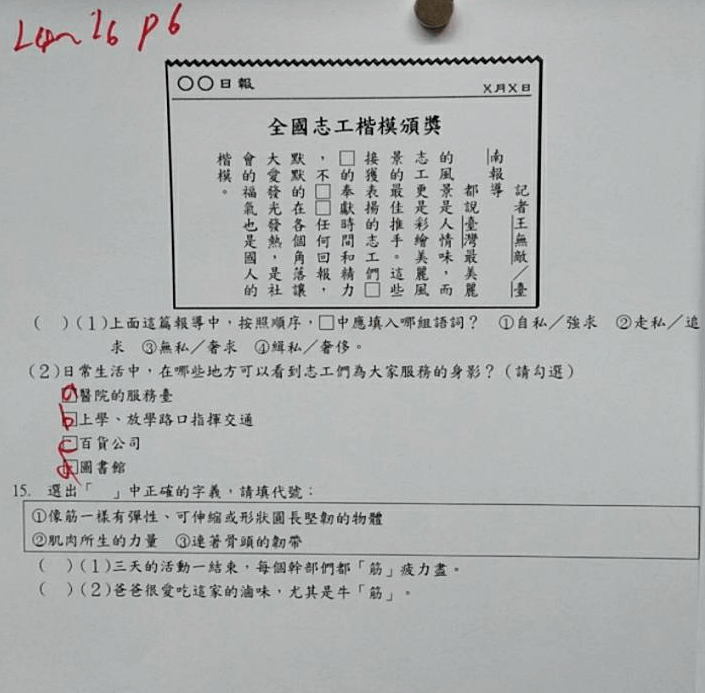 Lan 16 p6
○○日報
X月X日
全國志工楷模頒獎
記者王無敵／臺
南報導
都說臺灣最美麗
的風景是人情味，而
志工更是彩繪美麗風
景的最佳推手。這些
接獲表揚的志工們□
□的奉獻時間和精力
，不□□任何回報，
默默的在各個角落讓
大愛發光發熱，是社
會的福氣也是國人的
楷模。
( )(1)上面這篇報導中，按照順序，□中應填入哪組語詞？ ①自私／強求 ②走私／追
求 ③無私／奢求 ④緝私／奢侈。
(2)日常生活中，在哪些地方可以看到志工們為大家服務的身影？(請勾選)
a□醫院的服務臺
b□上學、放學路口指揮交通
c□百貨公司
d□圖書館
15. 選出「 」中正確的字義，請填代號：
①像筋一樣有彈性、可伸縮或形狀圓長堅韌的物體
②肌肉所生的力量 ③連著骨頭的韌帶
( )(1)三天的活動一結束，每個幹部們都「筋」疲力盡。
( )(2)爸爸很愛吃這家的滷味，尤其是牛「筋」。